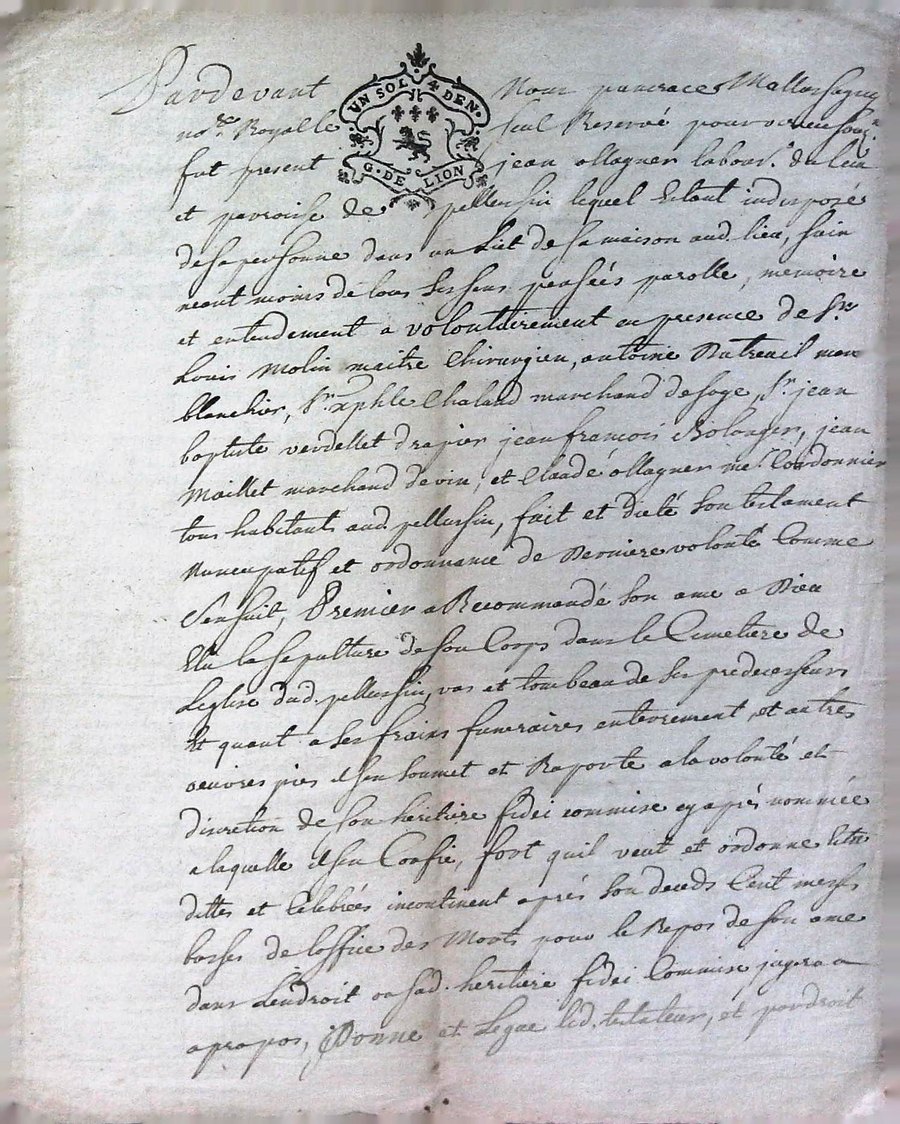 UN SOL 4 DEN.
G. DE LION
Pardevant Nous pancrace Mallassagny
no.re Royalle seul Reservé pour
fut present jean ollagner labour.r du lieu
et parroise de pellussin lequel Estant indisposé
de sa personne dans un Lict de sa maison aud. lieu, sain
neant moins de tous ses sens pensées parolle, memoire
et entendement a volontairement en presence de S.rs
Louis Molin maitre Chirurgien, antoine Dutreuil
blanchier, S.r Chaland marchand de soye, S.r jean
baptiste verdellet drapier jean francois Bolanger, jean
Maillet marchand de vin, et Claude ollagner me. Cordonnier
tous habitants aud. pellussin, fait et dicté son testament
Nuncupatif et ordonnance de Derniere volonté Comme
S'ensuit, Premier a Recommandé son ame a Dieu
Elu la sepulture de son Corps dans le Cimetiere de
L'eglise dud. pellussin, vas et tombeau de ses predecesseurs
Et quant a ses frains funeraires enterrement, et autres
oeuvres pies il s'en soumet et Raporte a la volonté et
discretion de son heritiere fidei commise cy apres nommée
a laquelle il s'en Confie, fort quil veut et ordonne Estre
dittes et Celebrées incontinent aprés son deceds Cent messes
basses de l'office des Morts pour le Repos de son ame
dans L'endroit ou sad. heritiere fidei Commise jugera a
apropos, Donne et Legue led. testateur, et pardroit